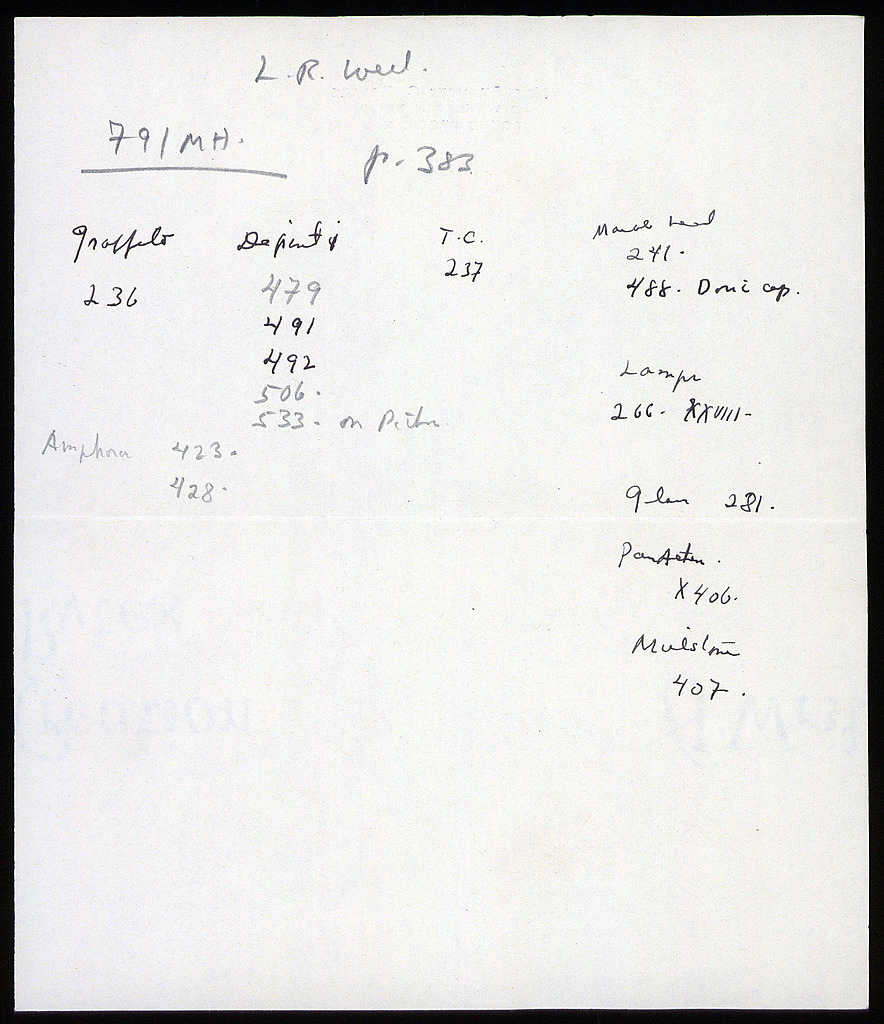 L. R. Well.
791 MH.
p. 383
Graffito
236
Dipinti
479
491
492
506.
533. on
Amphora 423.
428.
T.C.
237
Marble head
241.
488. Doric cap.
Lamps
266. XXVIII-
Glass 281.
X 406.
Millstone
407.